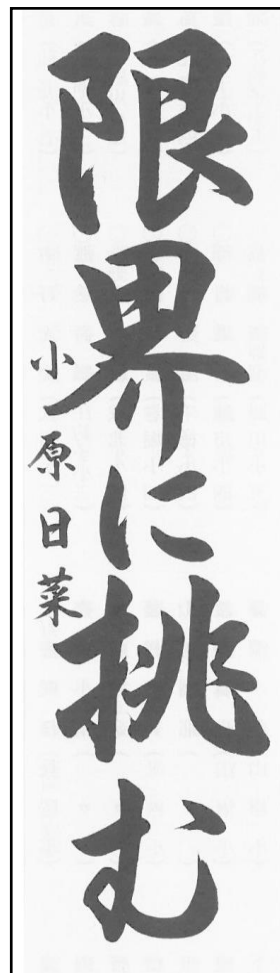 限界に挑む
小原日菜